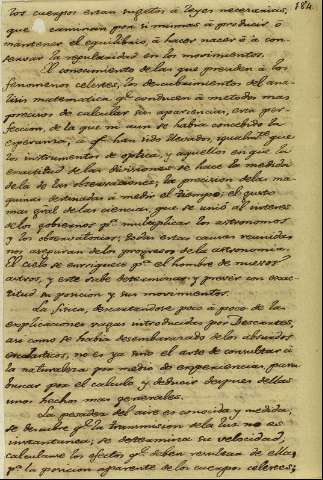 184.
los cuerpos estan sugetos à leyes necesarias,
que caminan por si mismas à producir ò
mantener el equilibrio, à hacer nacer ò à con-
servar la regularidad en los movimientos.
El conocimiento de las que presiden à los
fenomenos celestes, los descubrimientos del ana-
lisis matematica qe conducen à metodos mas
precisos de calcular sus apariencias, esta per-
feccion, de la que ni aun se habia concebido la
esperanza, à qe han sido llevados, igualmte que
los instrumentos de optica, y aquellos en que la
exactitud de las divisiones se hace la medida
de la de las observaciones, la precision de las ma-
quinas destinadas à medir el tiempo, el gusto
mas gral de las ciencias, que se unió al interes
de los gobiernos pa multiplicar los astronomos
y los observatorios; todas estas causas reunidas
aseguran de los progresos de la astronomia.
El cielo se enriquece pa el hombre de nuevos
astros, y este sabe determinar y prever con exac-
titud su posicion y sus movimientos.
La fisica, descartandose poco à poco de las
explicaciones vagas introducidas por Descartes,
asi como se habia desembarazado de los absurdos
escolasticos, no es ya sino el arte de consultar à
la naturaleza por medio de experiencias, para
buscar por el calculo, y deducir despues dellas
unos hechos mas generales.
La pesadez del aire es conocida y medida;
se descubre qe la transmision de la luz no es
instantanea; se determina su velocidad,
calculanse los efectos qe deben resultar de ella,
pa la posicion aparente de los cuerpos celestes;